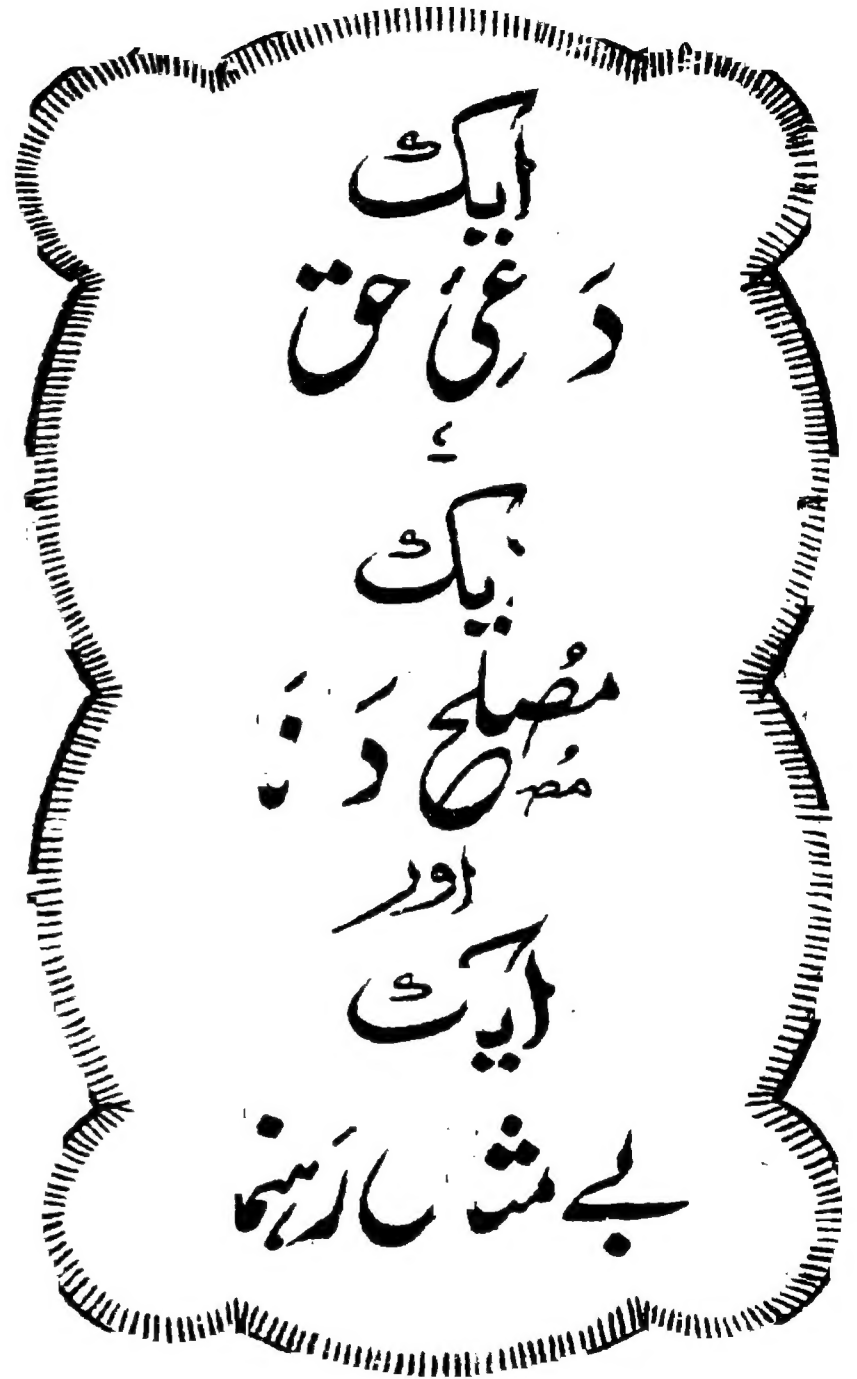 ایک
داعیٔ حق
ایک
مصلح
اور
ایک
بے مثال رہنما